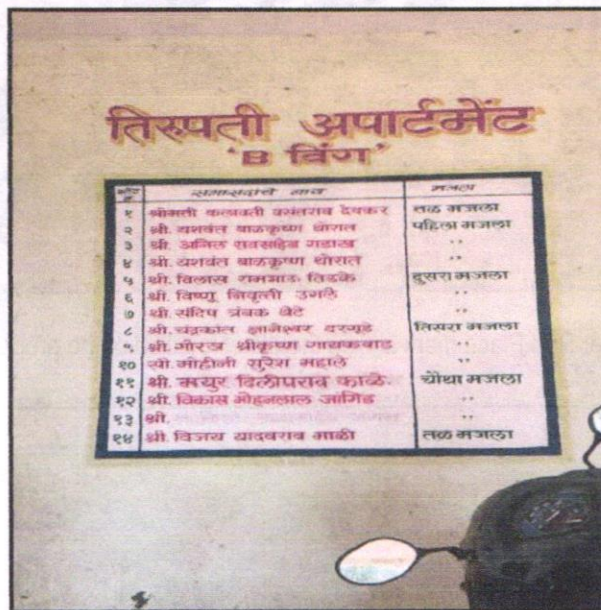 तिरुपती अपार्टमेंट
'B विंग'
सभासदांचे नाव मजला
१ श्रीमती कलावती वसंतराव देवकर तळ मजला
२ श्री. यशवंत बाळकृष्ण थोरात पहिला मजला
३ श्री. अनिल रावसाहेब गडाख ,,
४ श्री. यशवंत बाळकृष्ण थोरात ,,
५ श्री. विलास रामभाऊ तिडके दुसरा मजला
६ श्री. विष्णु निवृत्ती उगले ,,
७ श्री. संदिप त्रंबक बेटे ,,
८ श्री. चंद्रकांत ज्ञानेश्वर दरगुडे तिसरा मजला
९ श्री. गोरख श्रीकृष्ण गायकवाड ,,
१० सौ. मोहीनी सुरेश महाले ,,
११ श्री. मयुर दिलीपराव काळे. चौथा मजला
१२ श्री. विकास मोहनलाल जांगिड ,,
१३ श्री. ,,
१४ श्री. विजय यादवराव माळी तळ मजला